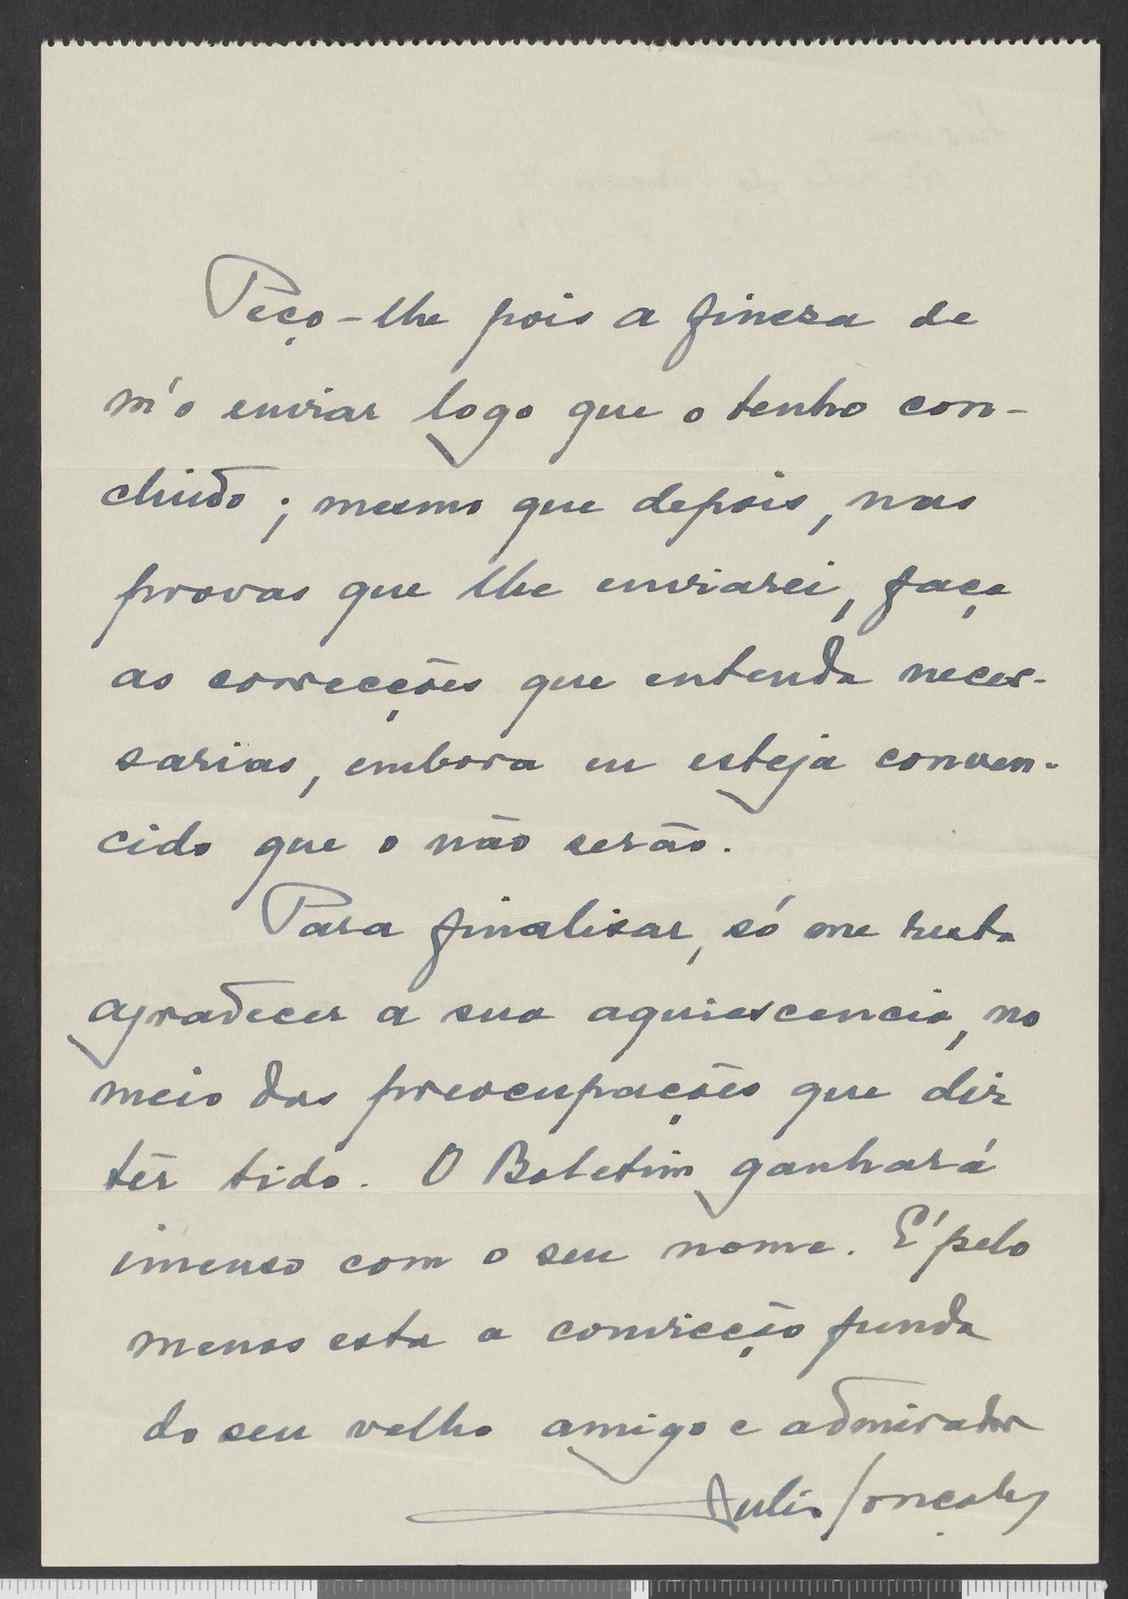 Peço-lhe pois a fineza de
m'o enviar logo que o tenha con-
cluido; mesmo que depois, nas
provas que lhe enviarei, faça
as correcções que entenda neces-
sarias, embora eu esteja conven-
cido que o não serão.
Para finalisar, só me resta
agradecer a sua aquiescencia, no
meio das preocupações que diz
têr tido. O Boletim ganhará
imenso com o seu nome. É pelo
menos esta a convicção funda
do seu velho amigo e admirador
Julio Gonçalves